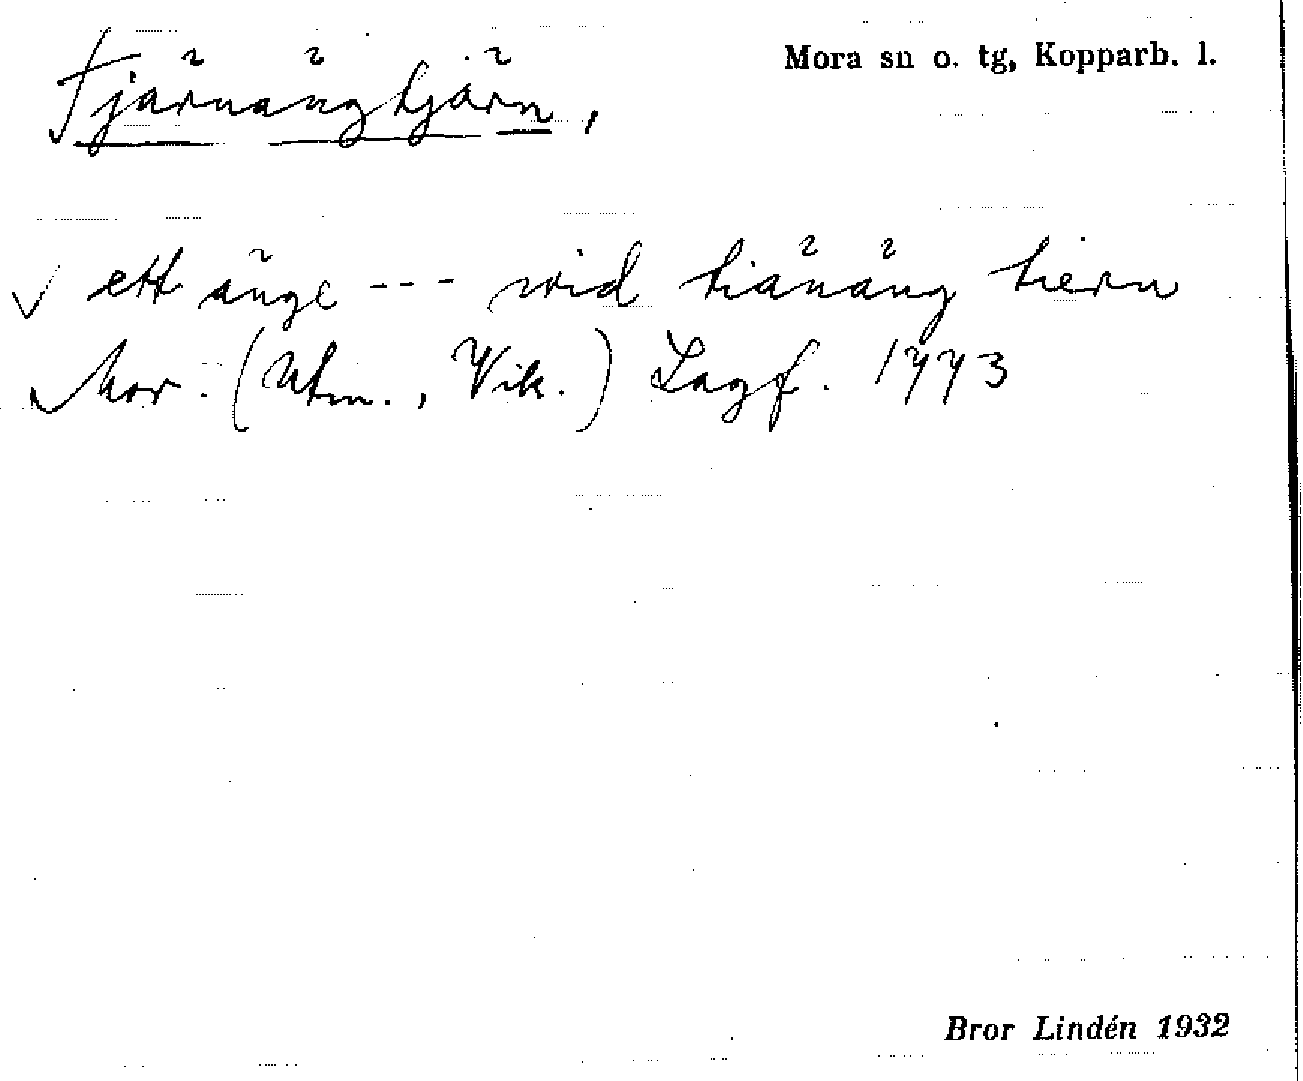 Mora sn o. tg, Kopparb. l.
Tjärnängtjärn,
ett änge --- wid tiänäng tiern
Mor. (Utm., Vik.) Lagf. 1773
Bror Lindén 1932